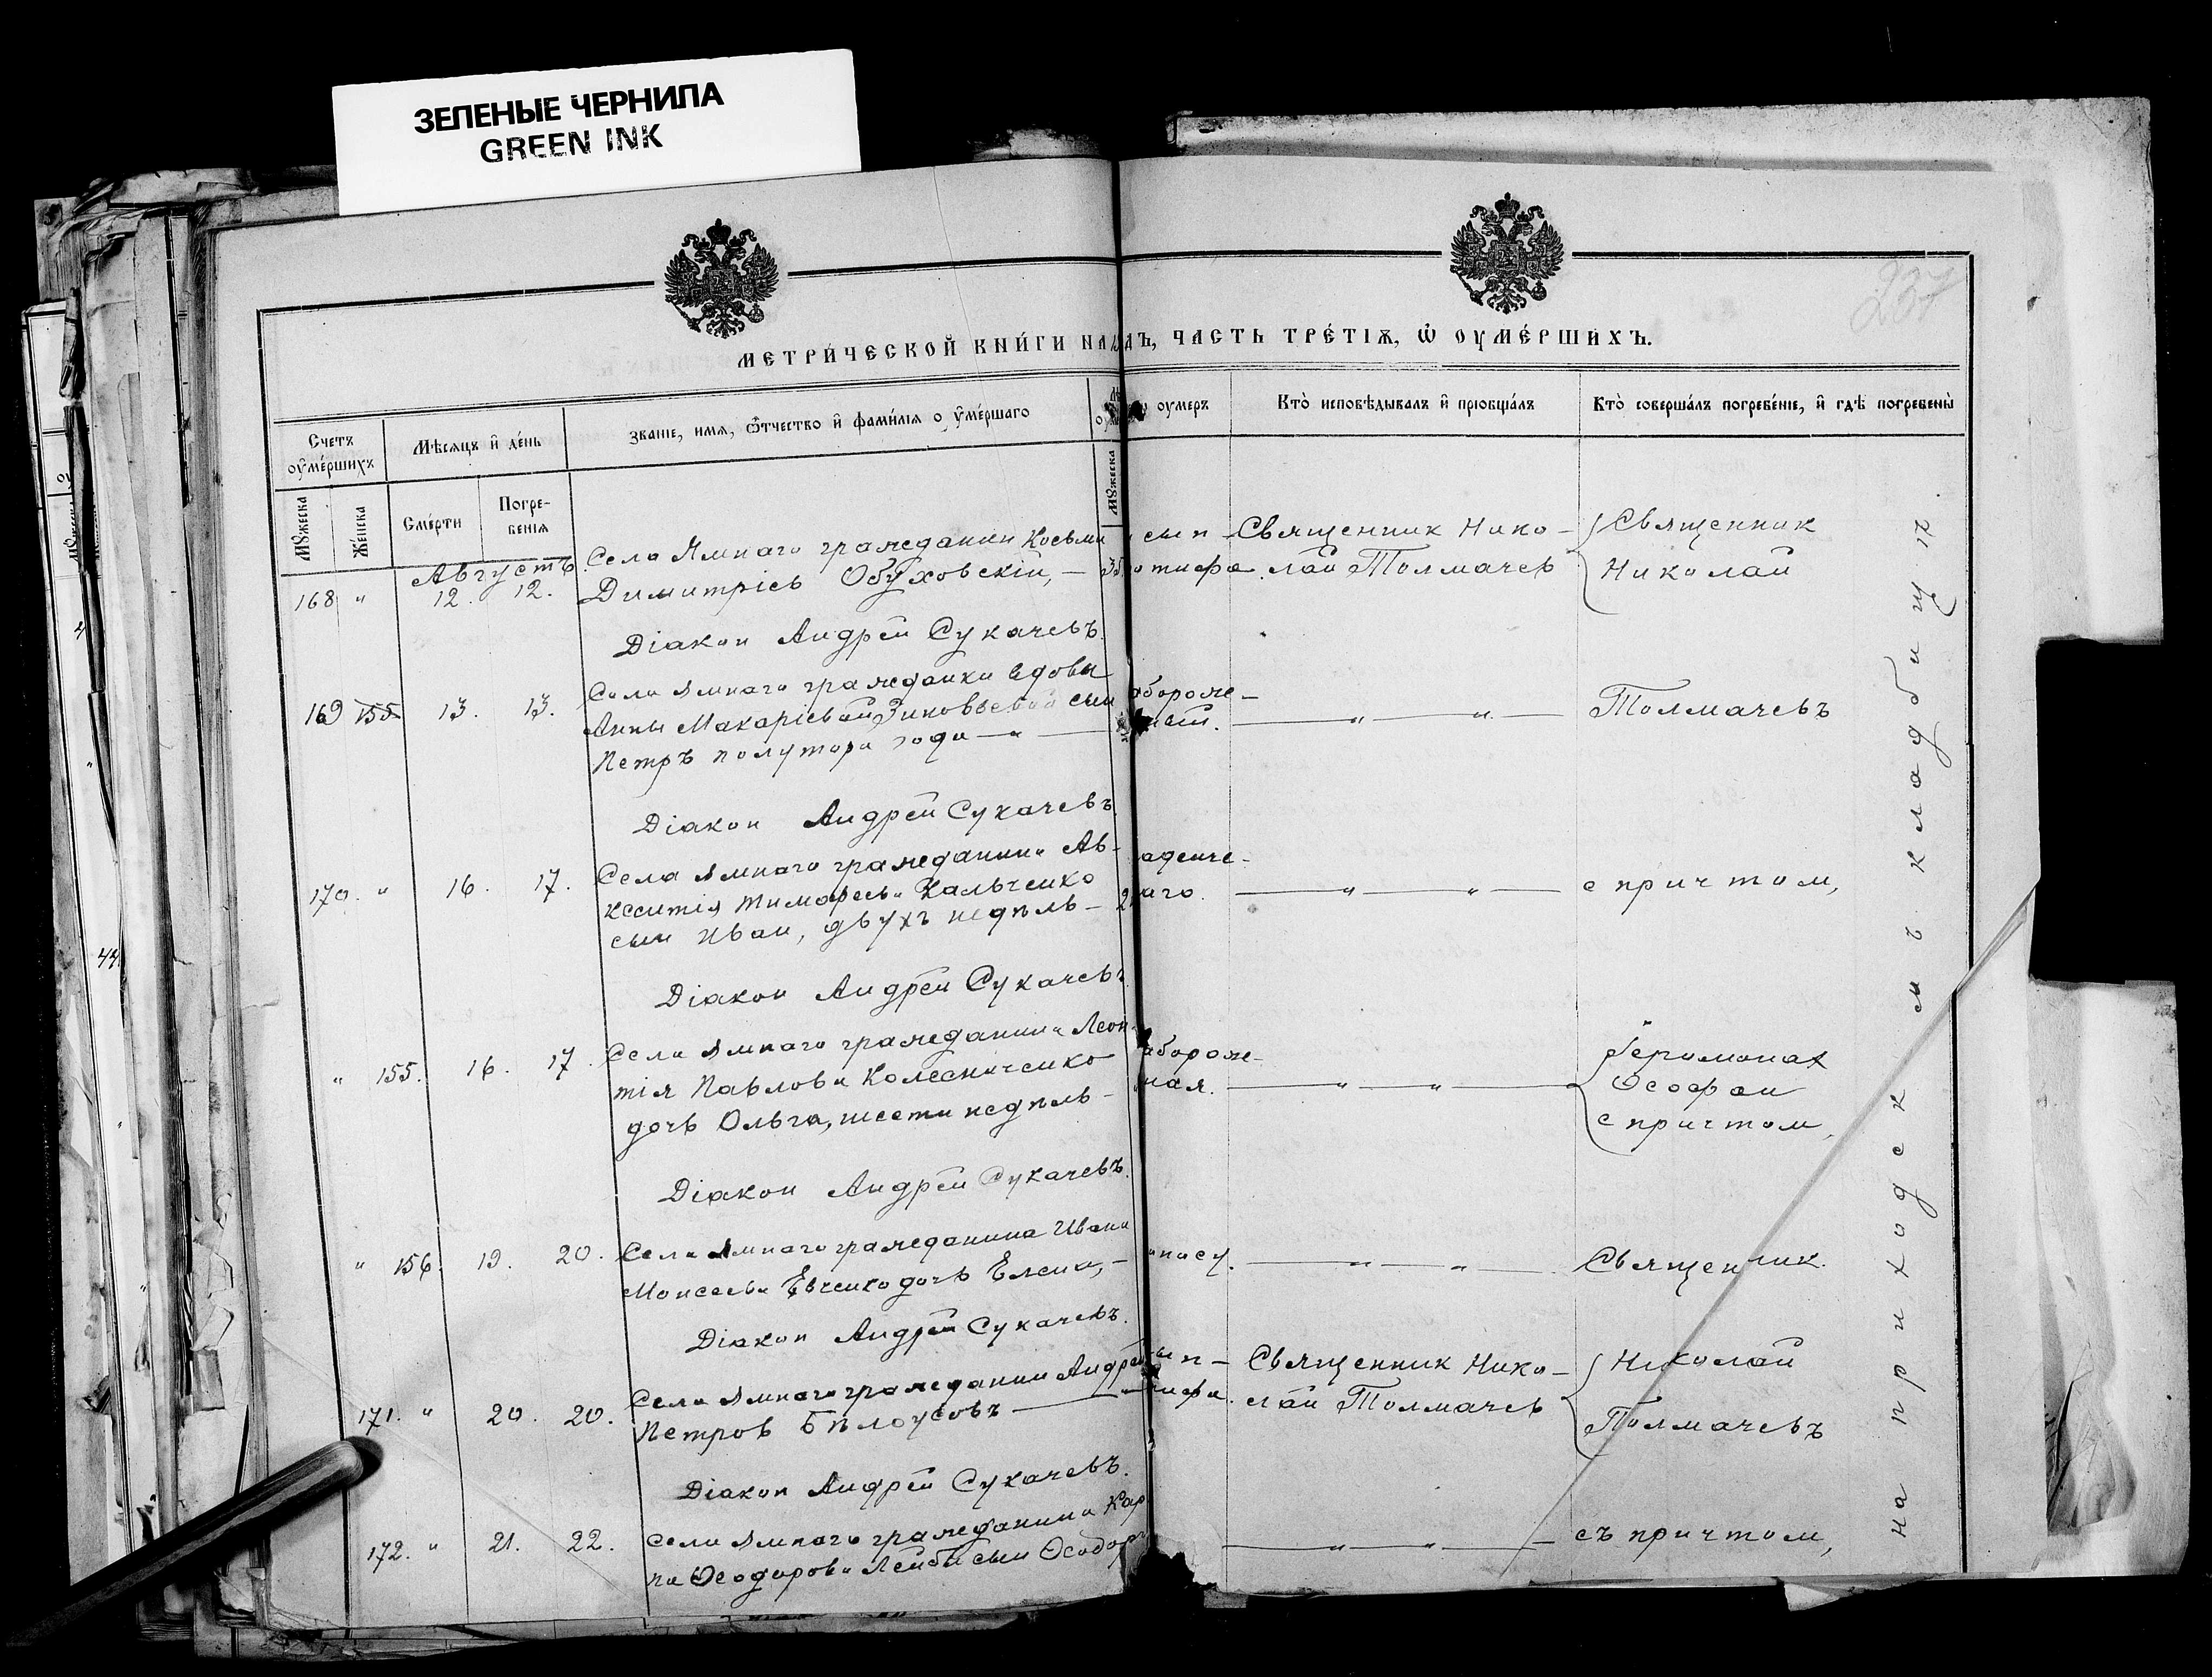 ЗЕЛЕНЫЕ ЧЕРНИЛА
GREEN INK
237
МЕТРИ́ЧЕСКОЙ КНИ́ГИ НА ЧАСТЬ ТРЕ́ТІѦ, Ѡ҆ ОУМЕ́РШИХЪ.
Счетъ оумершихъ
Мѣсяцъ и день
Званіе, имя, отчество и фамилія оумершаго
оумеръ
Кто исповѣдывалъ и пріобщалъ
Кто совершалъ погребеніе, и гдѣ погребены
Мужеска
Женска
Смерти
Погребенія
Мужеска
Августъ
168 " 12. 12.
Села Ямнаго гражданин Косьми
Димитріев Обуховскій, —
сып
тифа
Священник Нико-
лай Толмачев
Священник
Николай
Діакон Андрей Сукачевъ.
169 155 13. 13.
Села Ямнаго гражданки вдовы
Анны Макаріевой Зиновьевой сын
Петръ полутора года — " —
— " — " —
Толмачевъ
Діакон Андрей Сукачевъ
170. " 16. 17.
Села Ямнаго гражданина Ав-
ксентія Тимофеева Кальченко
сын Иван, двухъ недѣль —
— " — " —
с причтом,
Діакон Андрей Сукачевъ
" 155. 16. 17.
Села Ямнаго гражданина Леон-
тія Павлова Колесниченко
дочь Ольга, шести недѣль —
— " — " —
Іеромонах
Ѳеофан
с причтом,
Діакон Андрей Сукачевъ.
" 156. 19. 20.
Села Ямнаго гражданина Ивана
Моисеева Евченко дочь Елена, —
поносу.
— " — " —
Священник.
Діакон Андрей Сукачевъ.
171. " 20. 20.
Села Ямнаго гражданин Андрей
Петров Бѣлоусовъ —
сып-
тифа.
Священник Нико-
лай Толмачев
Николай
Толмачевъ
Діакон Андрей Сукачевъ.
172. " 21. 22.
Села Ямнаго гражданина Кар-
па Ѳеодорова сын Ѳеодор
— " — " —
съ причтом,
на приходскомъ кладбищѣ